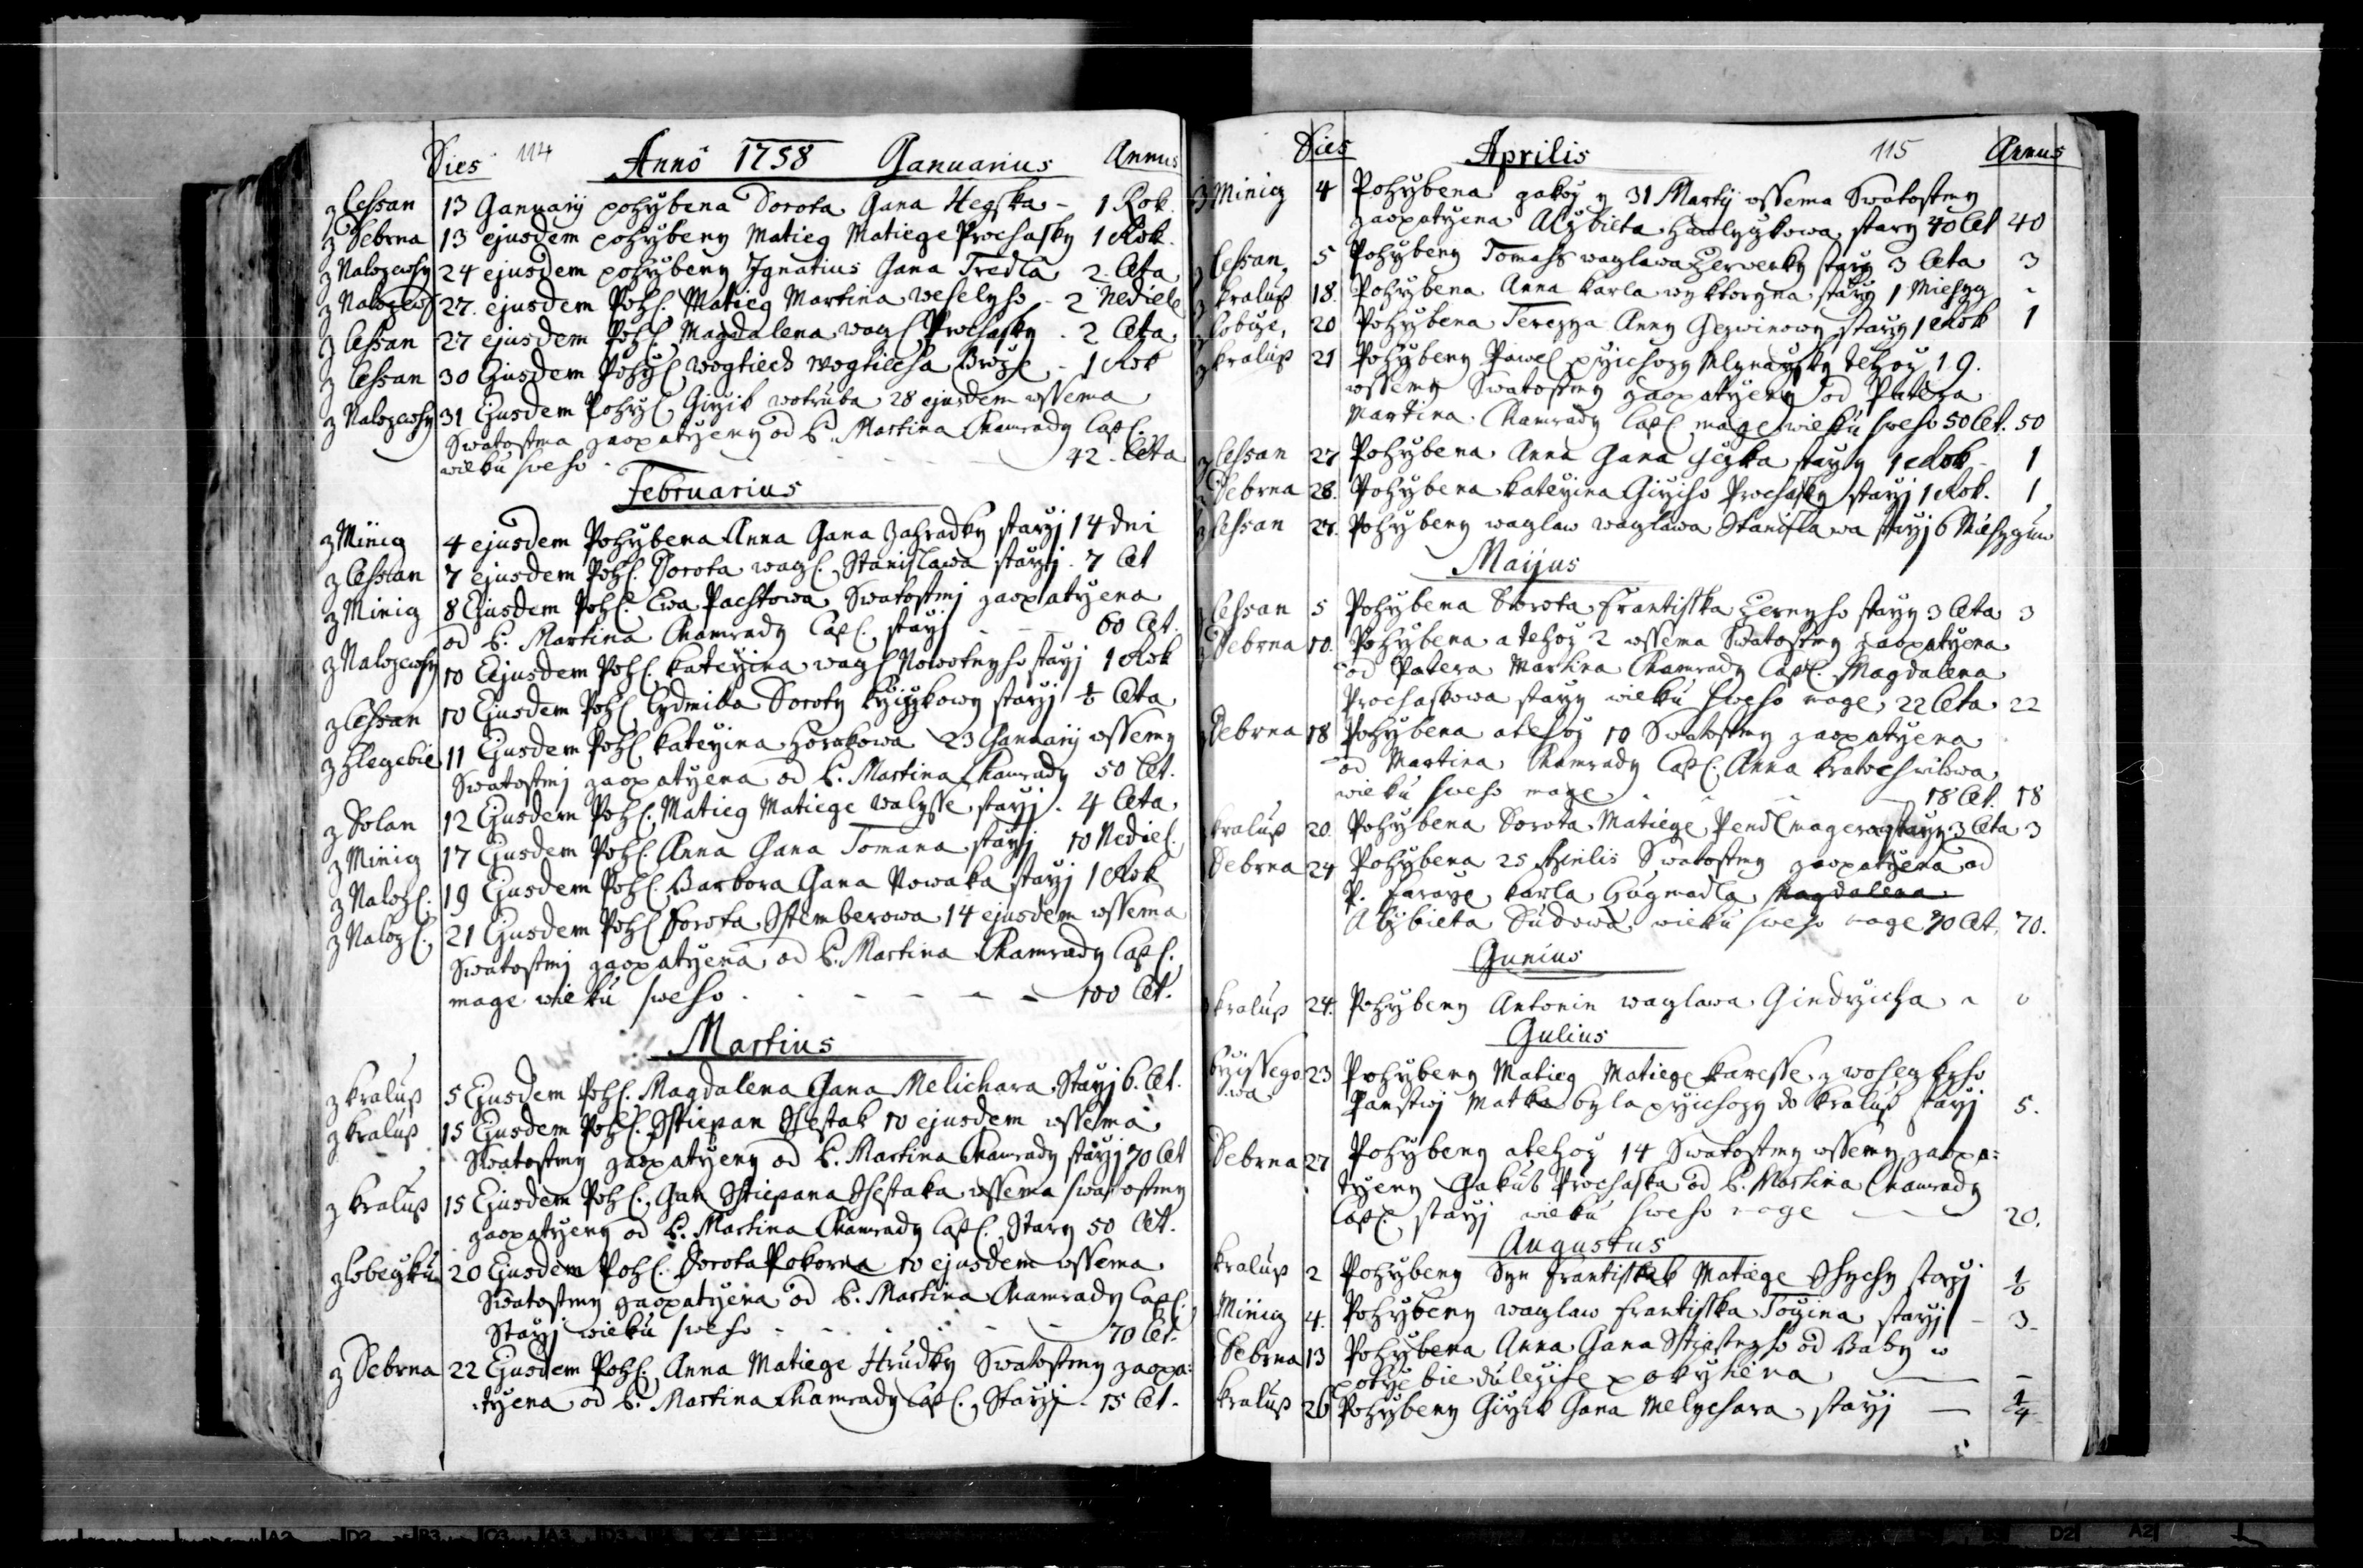 Dies 114 Anno 1758 Januarius Annus
z Lessan 13 Januarij pohrbena Dorota Gana Hegska - 1 Rok
z Debrna 13 ejusdem pohrbeny Matieg Matiege Prochasky 1 Rok
z Nalozewsy 24 ejusdem pohrbeny Ignatius Gana Tredla 2 Leta
27. ejusdem Pohr. Matieg Martina weselyho - 2 Nediele
z Lessan 27 ejusdem Pohr. Magdalena wagl. Prochasky . 2 Leta
z Lessan 30 Ejusdem Pohr. Wogtiech Wogtiecha - 1 Rok
z Nalozewsy 31 Ejusdem Pohr. Girzik wotruba 28 ejusdem wssema
Swatostma zaopatrzeny od P. Martina Chamrady Capl.
wieku sweho - 42 Leta
Februarius
z Minic 4 ejusdem Pohrbena Anna Gana Zahradky starzj 14 dni
z Lessan 7 ejusdem Pohr. Dorota wagl. Stanislawa starzj . 7 Let
z Minic 8 Ejusdem Pohr. Ewa Pachtowa Swatostmj zaopatrzena
od P. Martina Chamrady Capl. starzj - 60 Let.
z Nalozewsy 10 Ejusdem Pohr. Katerzina wagl. Nowotnyho starzj 1 Rok
z Lessan 10 Ejusdem Pohr. Lydmila Doroty starzj ½ Leta
11 Ejusdem Pohr. Katerzina Horakowa 23 Januarij wssemy
Swatostmj zaopatrzena od P. Martina Chamrady 50 Let.
z Dolan 12 Ejusdem Pohr. Matieg Matiege walysse starzj . 4 Leta
z Minic 17 Ejusdem Pohr. Anna Gana Tomana starzj 10 Nediel.
z Naloz. 19 Ejusdem Pohr. Barbora Gana Nowaka starzj 1 Rok
z Naloz. 21 Ejusdem Pohr. Dorota Stemberowa 14 ejusdem wssema
Swatostmj zaopatrzena od P. Martina Chamrady Capl.
mage wieku sweho - 100 Let.
Martius
z Kralup 5 Ejusdem Pohr. Magdalena Gana Melichara Starzj 6. Let.
z Kralup 15 Ejusdem Pohr. Sstiepan Ssestak 10 ejusdem wssema
Swatostmy zaopatrzeny od P. Martina Chamrady starzj 70 Let
z Kralup 15 Ejusdem Pohr. Gan Sstiepana Ssestaka wssema swatostmy
zaopatrzeny od P. Martina Chamrady Capl. Stary 50 Let.
20 Ejusdem Pohr. Dorota Pokorna 10 ejusdem wssema
Swatostmy zaopatrzena od P. Martina Chamrady Capl.
Starzj wieku sweho - 70 Let.
z Debrna 22 Ejusdem Pohr. Anna Matiege Hrudky Swatostmy zaopa:
trzena od P. Martina Chamrady Capl. Starzj . 15 Let.
Dies Aprilis 115 Annus
z Minic 4 Pohrbena 31 Martij wssema Swatostmy
zaopatrzena Alzbieta stary 40 Let 40
z Lessan 5 Pohrbeny Tomass waglawa Czerwenky stary 3 Leta 3
z Kralup 18. Pohrbena Anna Karla stary 1 Miesyc
20 Pohrbena Terezya Anny stary 1 Rok 1
z Kralup 21 Pohrbeny Pawel przichozy tehoz 19.
wssemy Swatostmy zaopatrzeny od Patera
Martina Chamrady Capl. mage wieku sweho 50 Let. 50
z Lessan 27 Pohrbena Anna Gana stary 1 Rok - 1
z Debrna 28. Pohrbena Katerzina Girziho Prochasky starzj 1 Rok. 1
z Lessan 28. Pohrbeny waglaw waglawa Stanislawa starzj 6 Miesycuw
Maijus
z Lessan 5 Pohrbena Dorota Frantisska Czernyho stary 3 Leta 3
z Debrna 10. Pohrbena a tehoz 2 wssema Swatostmy zaopatrzena
od Patera Martina Chamrady Capl. Magdalena
Prochaskowa stary wieku sweho mage 22 Leta 22
z Debrna 18 Pohrbena a tehoz 10 Swatostmy zaopatrzena
od Martina Chamrady Capl. Anna
wieku sweho mage - 18 Let. 18
Kralup 20. Pohrbena Dorota Matiege 3 Leta 3
Debrna 24 Pohrbena 25 Aprilis Swatostmy zaopatrzena od
P. Fararze Karla Magdalena
Alzbieta Dudowa wieku sweho mage 70 Let, 70.
Junius
Kralup 24. Pohrbeny Antonin waglawa Gindrzicha
Julius
23 Pohrbeny Matieg Matiege Karesse
Panstwj Matka byla przichozy do Kralup starzj 5.
Debrna 27 Pohrbeny a tehoz 14 Swatostmy wssemy zaopa:
trzeny Jakub Prochaska od P. Martina Chamrady
Capl. starzj wieku sweho mage - 20.
Augustus
Kralup 2 Pohrbeny Syn Frantissek Matiege starzj
Minic 4. Pohrbeny waglaw Frantisska starzj - 3
Debrna 13 Pohrbena Anna Gana Sstiastnyho od Baby w
potrzebie dulezite pokrztiena -
Kralup 26 Pohrbeny Girzik Gana Melychara starzj - ¼